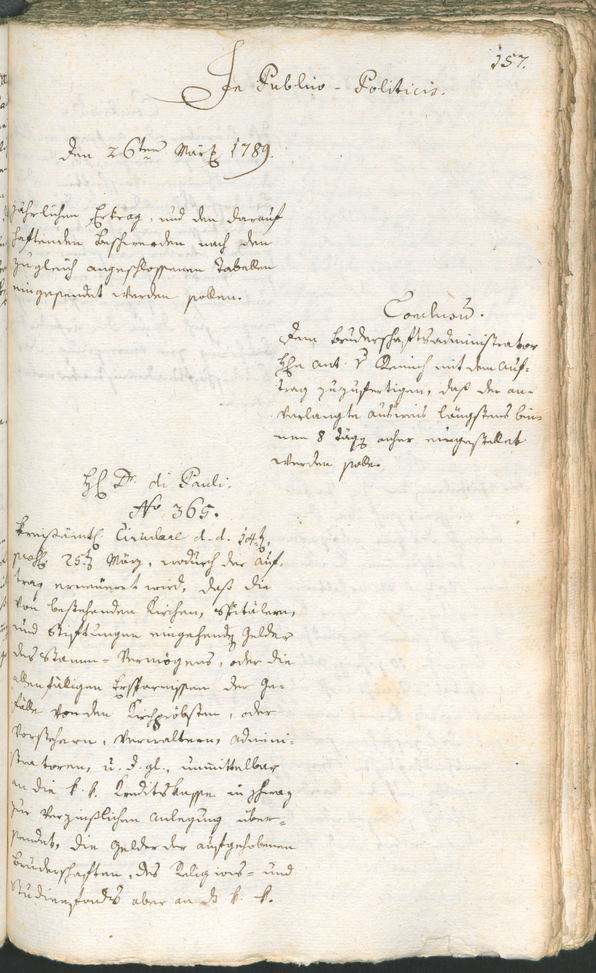 157.
In Publico-Politicis.
den 26ten März 1789.
jährlichen Ertrag, und den darauf
haftenden Beschwerden nach den
zugleich angeschlossenen Tabellen
eingesendet werden sollen.
Conclusum.
Dem Bruderschaftsadministrator
Hhn Ant. v mit dem Auf-
trag zuzufertigen, daß der an-
verlangte Ausweis längstens bin-
nen 8 Täg anher eingestellet
werden solle.
Hh Dr. di Pauli.
No 365.
Kreisämtl. Circulare d. d. 14t,
25t März, wodurch der Auf-
trag erneuert wird, daß die
von bestehenden Kirchen, Spitälern,
und Stiftungen eingehende Gelder
des Stamm-Vermögens, oder die
allenfälligen Ersparnissen der Ge-
fälle von den Kirchpröbsten, oder
Vorstehern, Verwaltern, Admini-
stratoren, u. d. gl. unmittelbar
an die k. k. Kreditskasse in
zur verzinslichen Anlegung über-
sendet, die Gelder der aufgehobenen
Bruderschaften, des Religions- und
Studienfonds aber an d k. k.